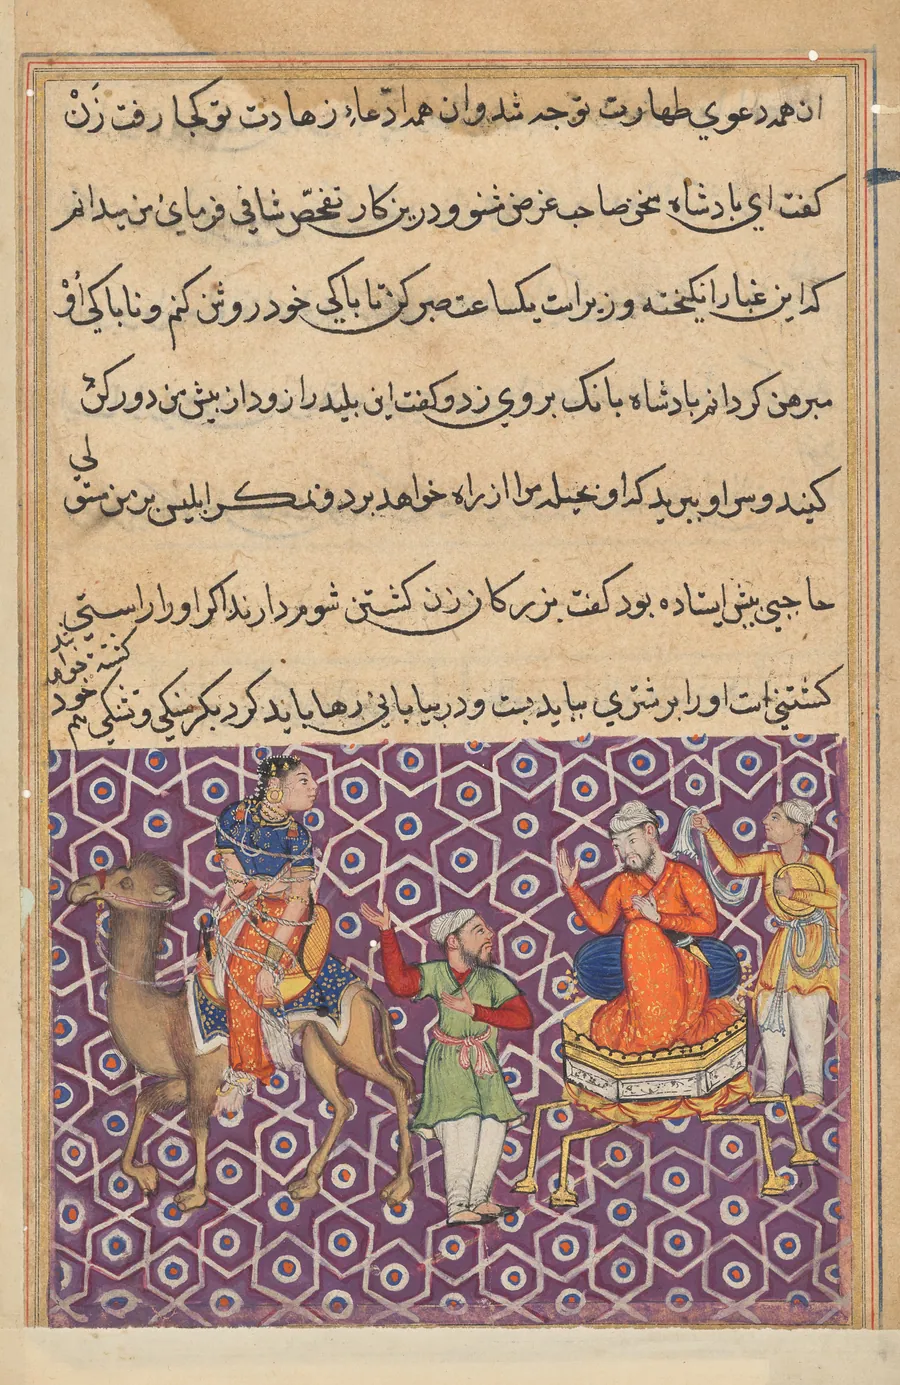 ان همه دعوي طهارت تو جه شد و ان همه ادّعاءِ زهادت تو كجا رفت زَنْ
كفت اي بادشاه سخن صاحب غرض مشنو و درين كار تفحّص شافي فرماي من ميدانم
كه اين غبار انكيخته وزيرست يكساعت صبر كن تا باكي خود روشن كنم و ناباكي اُوْ
مبرهن كردانم بادشاه بانك بروي زد و كفت اين بليد را زود از بيش من دور كنْ
كنيد و سر او ببريد كه او بحيله مرا از راه خواهد برد و مكر ابليس بر من
لي
حاجبي بيش ايستاده بود كفت بزركان زن كشتن شوم دارند اكر او را راستي
كشتني است او را بر شتري ببايد بست و در بياباني رها بايد كرد تشنكي
كشته خواهد
خود
هم